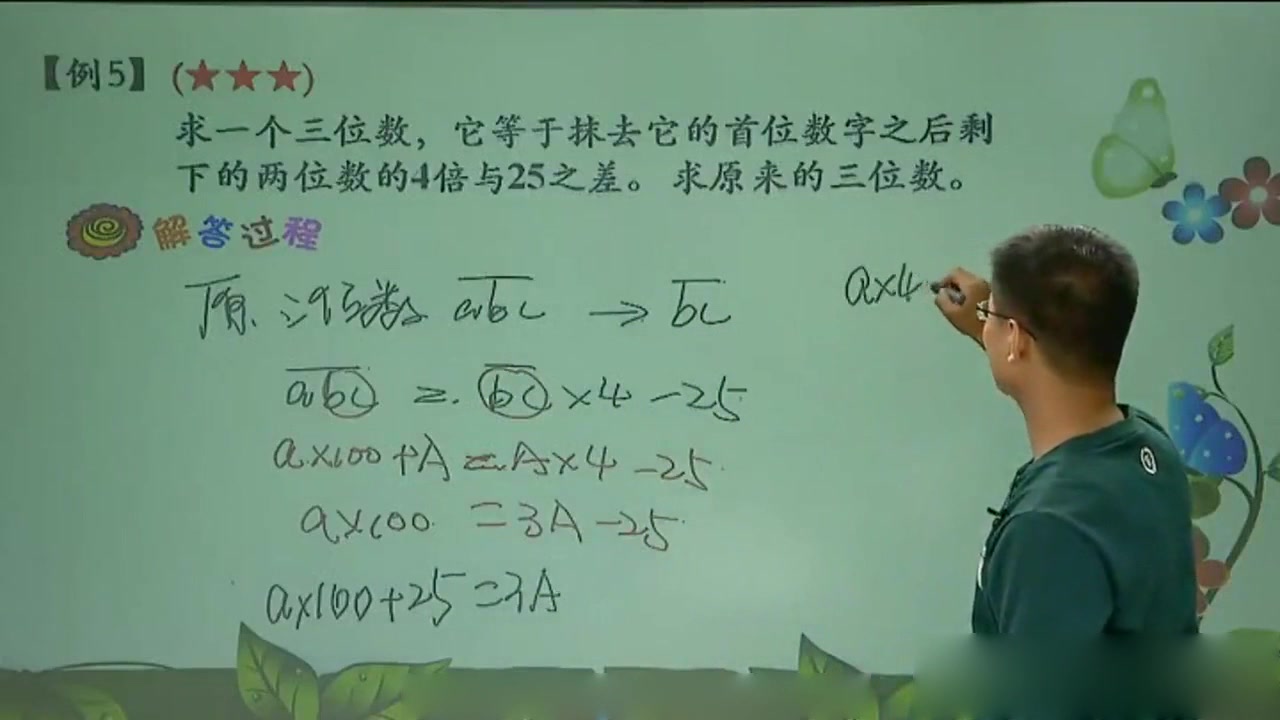 【例5】(★★★)
求一个三位数，它等于抹去它的首位数字之后剩
下的两位数的4倍与25之差。求原来的三位数。
解答过程
原三位数 abc → bc
abc = bc×4-25
a×100+A=A×4-25
a×100=3A-25
a×100+25=3A
a×4